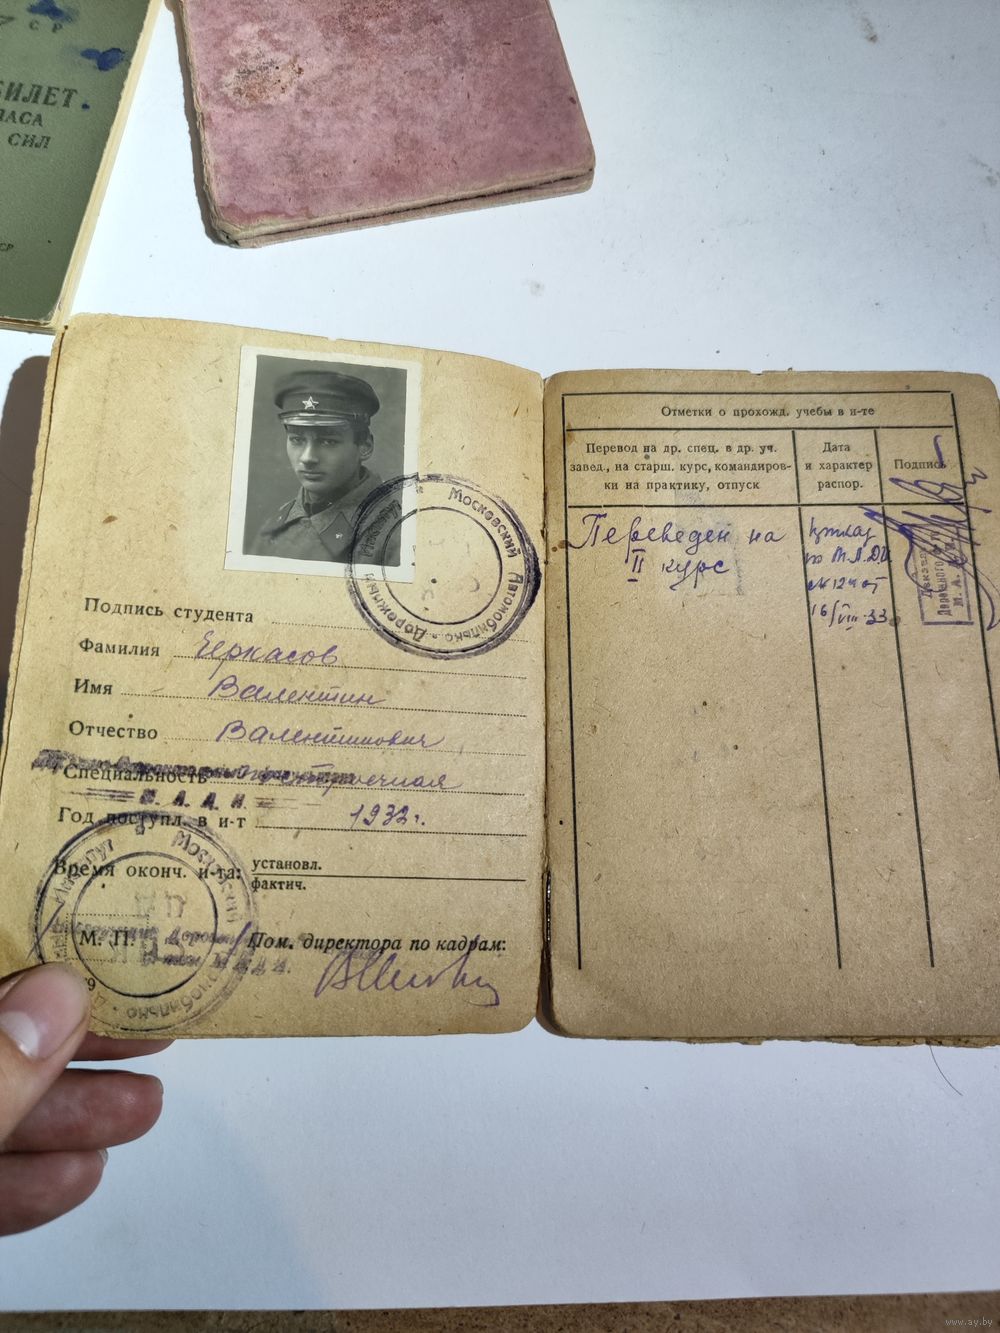 СР
БИЛЕТ
ПАСА
СИЛ
СР
Московский Автомобильно-Дорожный Институт
Подпись студента
Фамилия Черкасов
Имя Валентин
Отчество Валентинович
Специальность
М. А. Д. И.
Год поступл. в и-т 1932 г.
Время оконч. и-та: установл.
фактич.
Московский
Институт
М. П.
Пом. директора по кадрам:
9
Отметки о прохожд. учебы в и-те
Перевод на др. спец. в др. уч.
завед., на старш. курс, командиров-
ки на практику, отпуск
Дата
и характер
распор.
Подпись
Переведен на
II курс
по М.А.Д.И.
№ 124 от
16/VIII-33
Декан
Дорожного
М. А.
www.ay.by